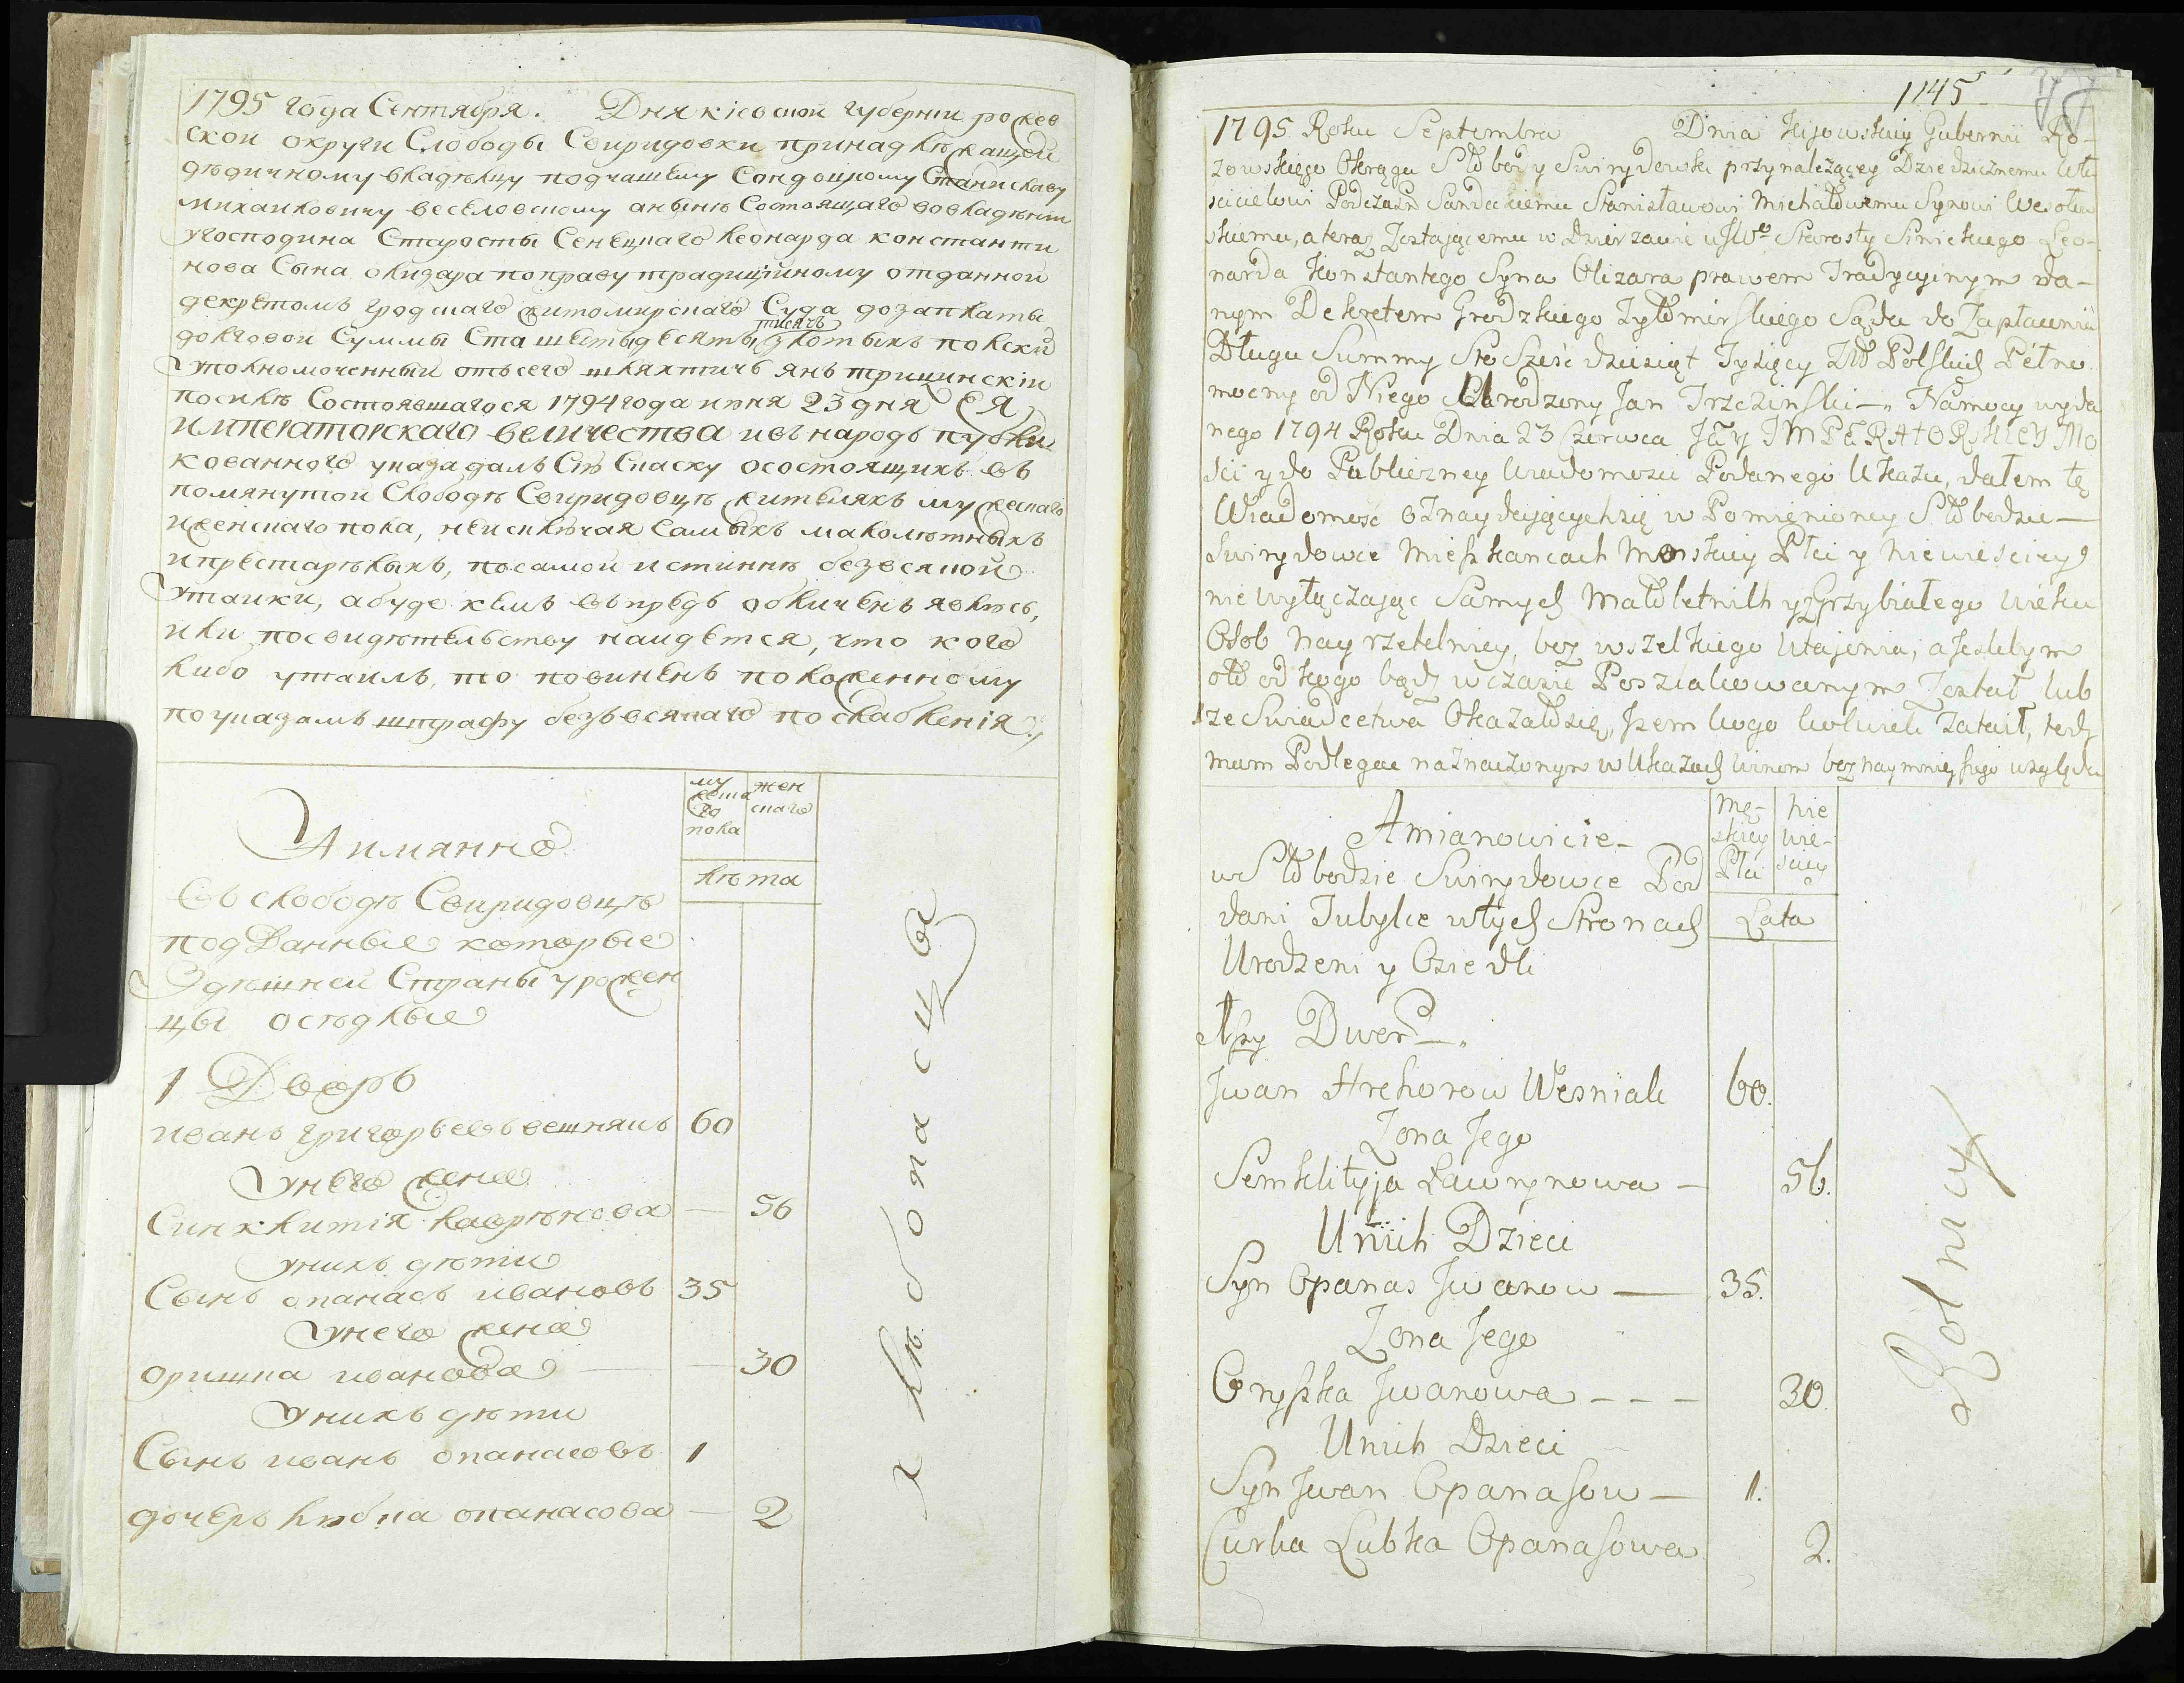 1795 года Сентября. Дня кіевской губернии рожев
ской округи Слободы Свиридовки принадлѣжащей
дѣдичному владѣлцу подчашему Сандоцкому Станиславу
михайловичу веселовскому анынѣ Состоящаго вовладѣнии
угосподина Старосты Сенецкаго леонарда константи
нова Сына олизара поправу традицийному отданной
декретомъ гродскаго житомирскаго Суда дозаплаты
долговой Суммы Ста шестьдесятъ тисячъ злотыхъ полски
уполномоченный отъсего шляхтичъ янъ трицинскій
посилѣ Состоявшагося 1794 года июня 23 дня ЕЯ
императорскаго величества ивъ народъ публи
кованного указа далъ Сію Сказку осостоящихъ въ
помянутой Слободѣ Свиридовцѣ жителяхъ мужескаго
иженскаго пола, неисключая Самыхъ малолѣтныхъ
ипрестарѣлыхъ, посамой истиннѣ безвсякой
утайки, абуде кемъ въпредь обличенъ явлюсь,
или посвидѣтельству найдется, что кого
либо утаилъ, то повиненъ положенному
поуказамъ штрафу безъвсякаго послабленія
му
жеска
го
пола
жен
скаго
Аимянно
лѣта
Въ слободѣ Свиридовцѣ
подданные которые
Здѣшней Страны урожен
цы осѣдлые
1 Дворъ
иванъ григорьевъ вешнякъ 60
Унего жена
Синклитія лаврѣнова — 56
унихъ дѣти
Сынъ опанасъ ивановъ 35
Унего жена
оришка иванова — 30
Унихъ дѣти
Сынъ иванъ опанасовъ 1
дочерь любка опанасова — 2
хлѣбопасцы
1145
1795 Roku Septembra Dnia Kijowskiey Gubernii Ro-
zowskiego Okręgu Słobody Swirydowki przynależącey Dziedzicznemu Wła
scicielowi Podczasz. Sandockiemu Stanisławowi Michałowemu Synowi Wesołow
skiemu, a teraz Zostającemu w Dzierzawie u JWo Starosty Sinickiego Leo-
narda Konstantego Syna Olizara prawem Tradycyinym da-
nym Dekretem Grodzkiego Zytomirskiego Sądu do Zapłacenia
Długu Summy Sto Sześć dziesiąt Tysięcy Zło Polskich Pełno
mocny od Niego Urodzony Jan Trzcziński —„ Na mocy wyda
nego 1794 Roku Dnia 23 Czerwca Jey IMPERATORSKIEY Mo
sci y do Publiczney Wiadomosci Podanego Ukazu, dałem tę
Wiadomość o Znaydujących się w Pomienioney Słobodzie —
Swirydowce Mieszkancach Monskiey Płci y Niewiesciey
nie wyłączając Samych Małoletnich y Zgrzybiałego wieku
Osob nay rzetelniey, bez wszelkiego Utajenia, a jeslibym
od kogo bądź w czasie Poszlakowanym Został lub
ze Swiadectwa Okazało się, żem kogo kolwiek zataił, tedy
mam Podlegac naznaczonym w Ukazach winom bez naymnieyszego względu
Mę-
skiey
Płci
Nie
wie-
sciey
Amianowicie —
Lata
w Słobodzie Swirydowce Pod
dani Tubylce w tych Stronach
Urodzeni y Osiedli
1szy Dwor —„
Jwan Hrehorow Wesniak 60.
Zona Jego
Semklityja Ławrynowa — 56.
U nich Dzieci
Syn Opanas Jwanow — 35.
Zona Jego
Oryszka Jwanowa — — — 30.
U nich Dzieci
Syn Jwan Opanasow — 1.
Curka Lubka Opanasowa 2.
Rolnicy